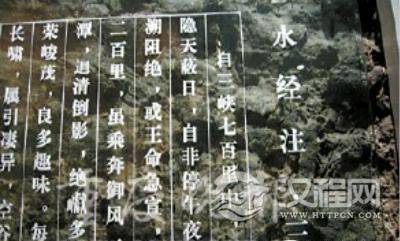 水经注三
自三峡七百里中，
隐天蔽日，自非停午夜
溯阻绝，或王命急宣，
二百里，虽乘奔御风，
潭，迴清倒影，绝巘多
荣峻茂，良多趣味。每
长啸，属引凄异，空谷
汉程网
WWW.HTTPCN.COM